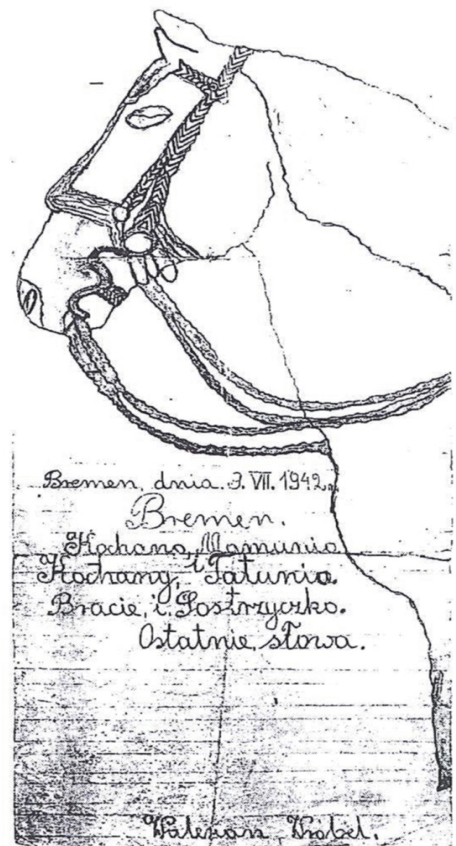 Bremen, dnia. 9. VII. 1942.
Bremen.
Kochano, Mamunio
Kochany, i Tatunio.
Bracie, i Sostrzyczko.
Ostatnie, słowa.
Walerjan, Wróbel.